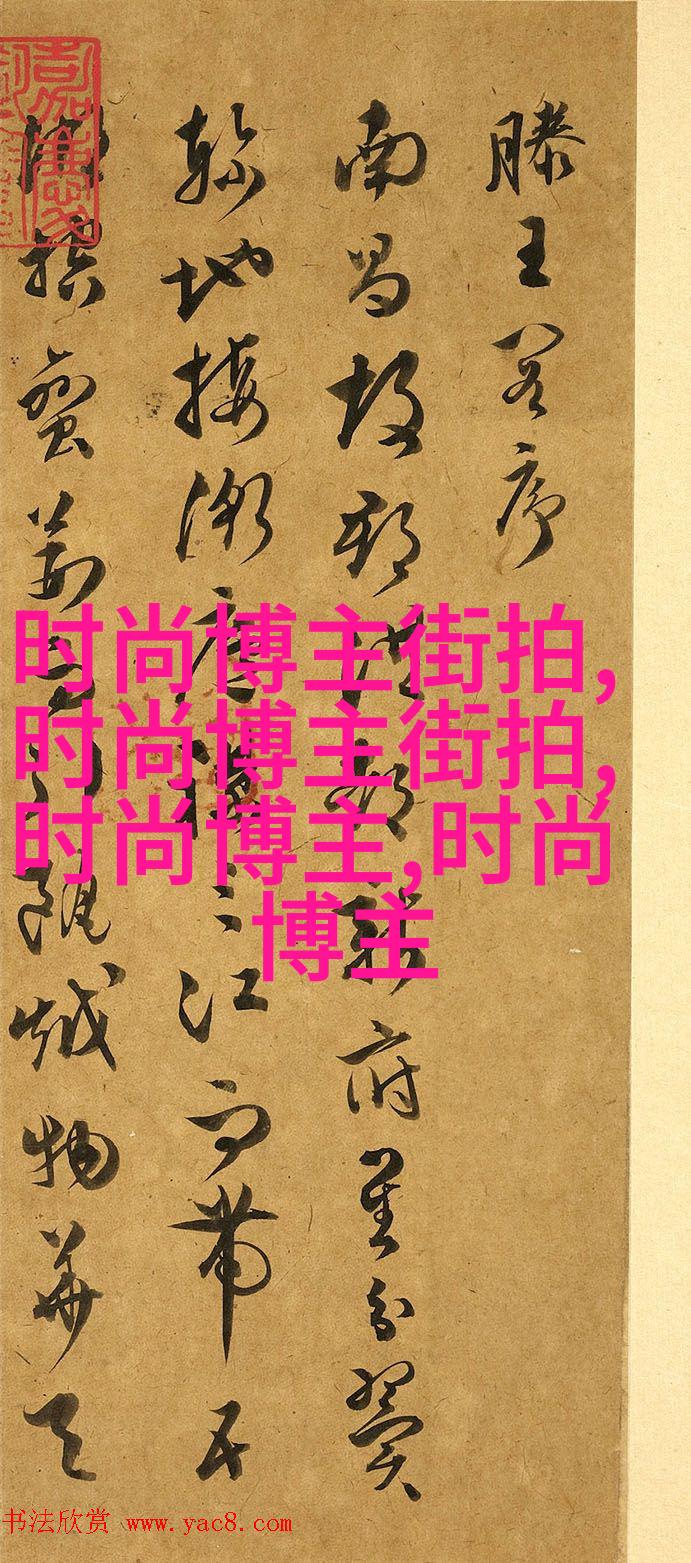 滕王閣序
南昌故郡洪都新府星分翼
軫地接衡廬襟三江而帶五
湖控蠻荊而引甌越物華天
时尚博主街拍,
时尚博主街拍,
时尚博主,时尚
博主
书法欣赏 www.yac8.com